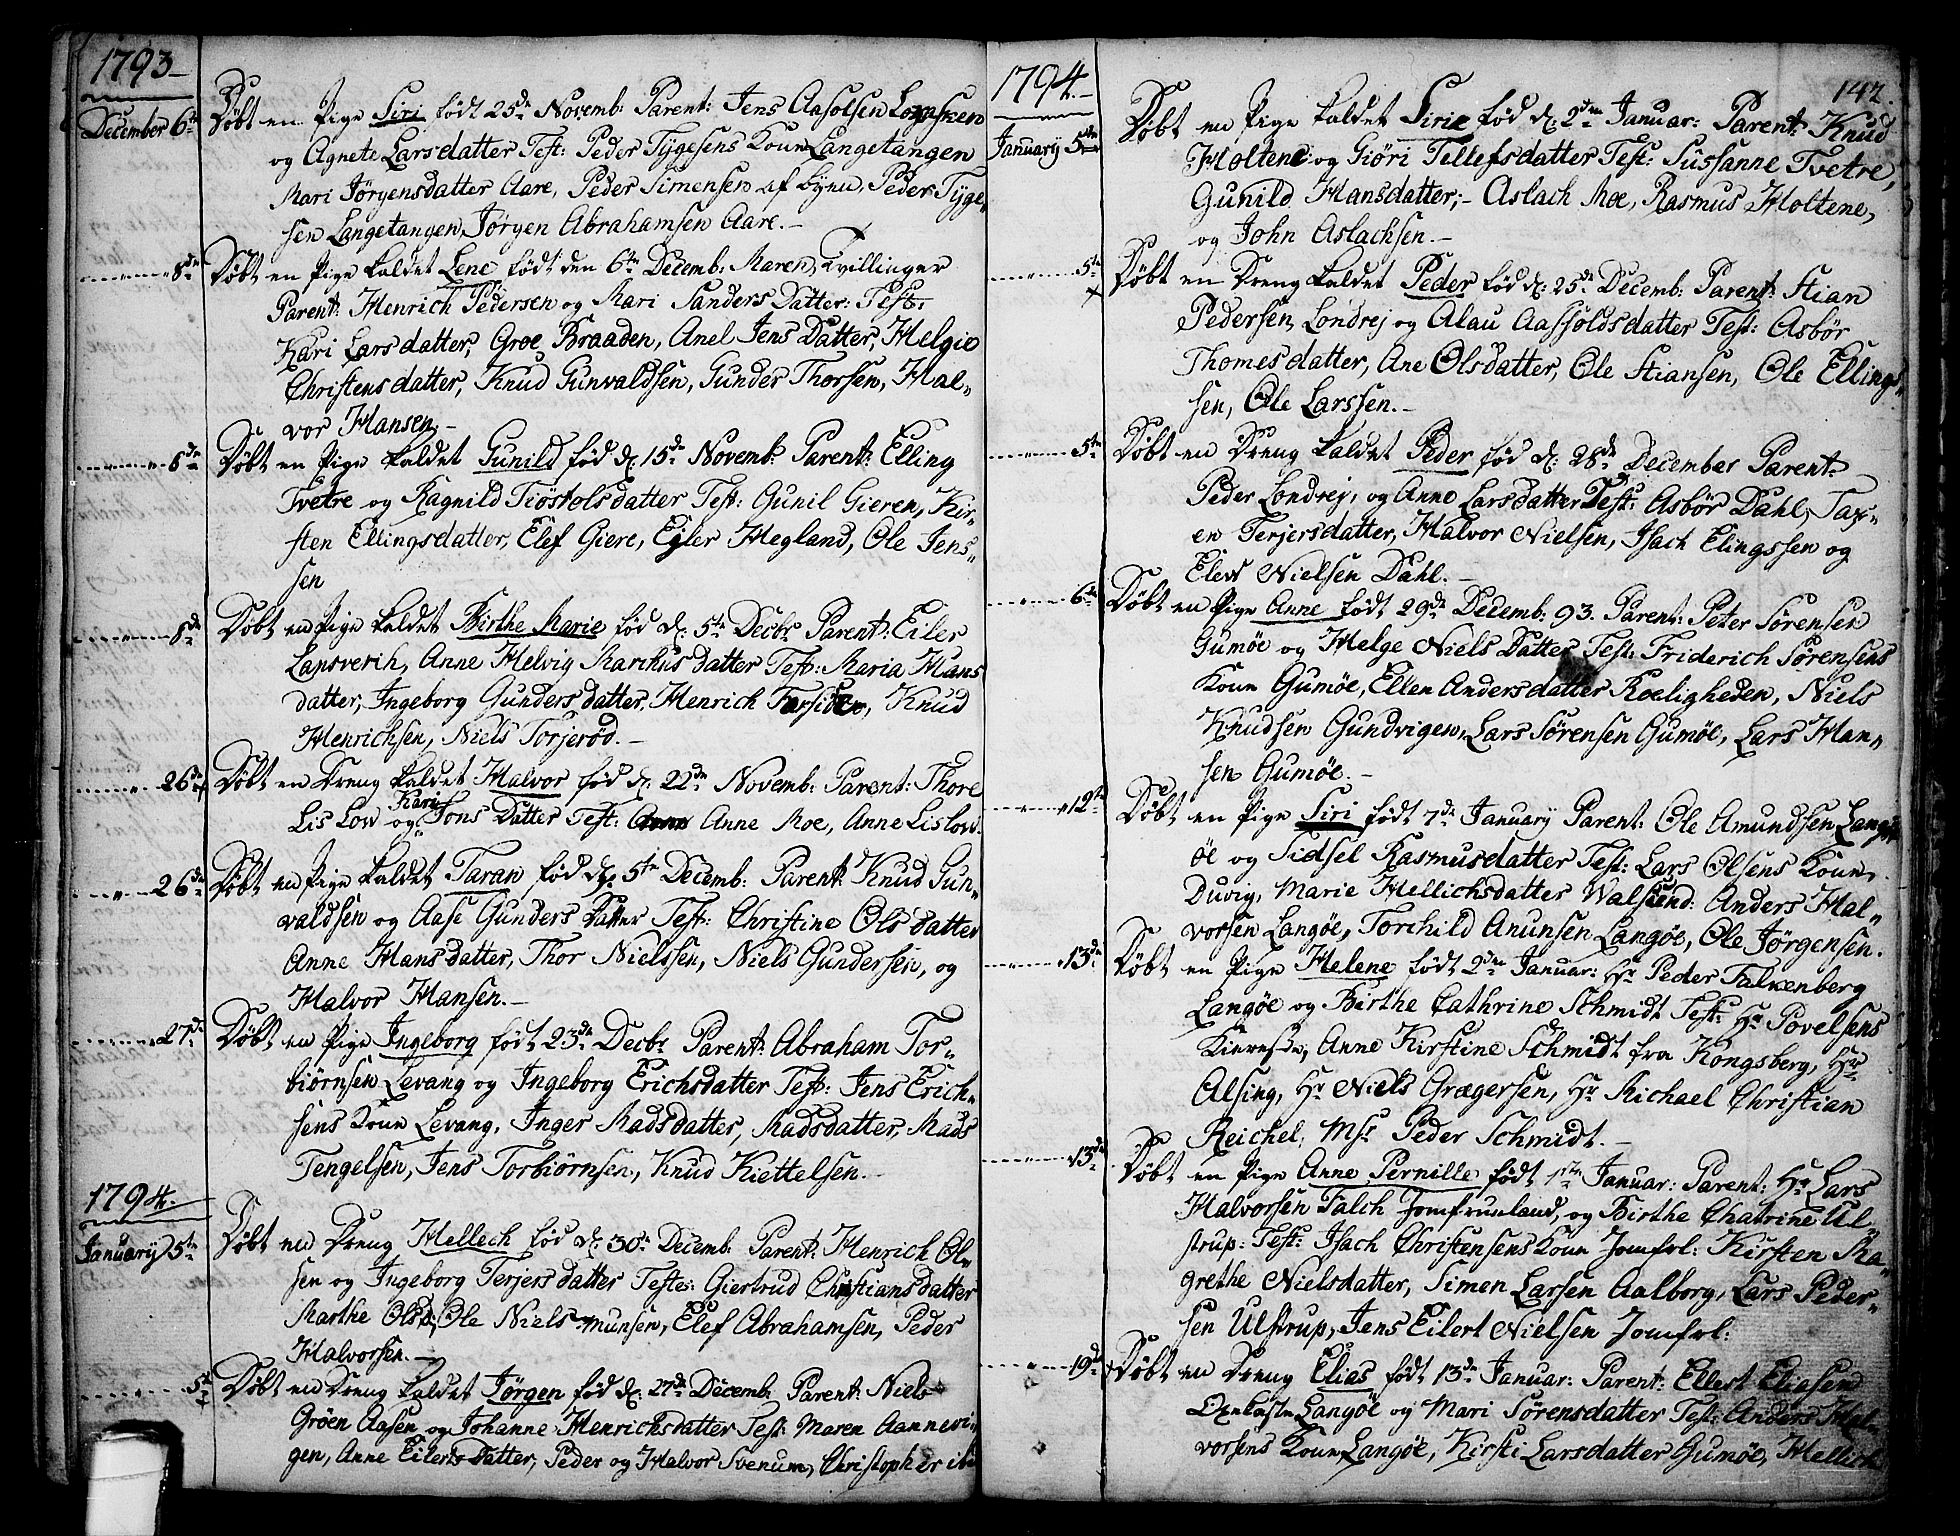 1793
December 6te Døbt en Pige Siri født 25de Novemb: Parent: Jens Aasolsen
og Agnete Larsdatter Test: Peder Tygesens Kone Langetangen
Mari Jørgensdatter Aare, Peder Simensen af byen, Peder Tyge-
sen Langetangen, Jørgen Abrahamsen Aare.-
8de Døbt en Pige kaldet Lene født den 6te Decemb: Maren, Tvillinger
Parent: Henrich Pedersen og Mari Sanders Datter: Test:
Kari Larsdatter, Groe Braaden, Anel Jens Datter, Helgie
Christensdatter, Knud Gunvaldsen, Gunder Thorsen, Hal-
vor Hansen.-
8de Døbt en Pige kaldet Gunild fød d: 15de Novemb: Parent: Elling
Tvetre og Ragnild Tiøstolsdatter Test: Gunil Gieren, Kir-
sten Ellingsdatter, Elef Giere, Ejler Hegland, Ole Jens-
sen
8de Døbt en Pige kaldet Birthe Marie fød d: 5te Decbr Parent: Eiler
Lansverih, Anne Helvig Marchusdatter Test: Maria Hans
datter, Ingeborg Gundersdatter, Henrich Knud
Henrichsen, Niels Torjerød.-
26de Døbt en Dreng kaldet Halvor fød d: 22de Novemb: Parent: Thore
Lis Low og Kari Jons Datter Test: Anne Moe, Anne Lislow.
26de Døbt en Pige kaldet Taran fød d: 5te Decemb: Parent: Knud Gun-
valdsen og Aase Gunders Datter Test: Christine Olsdatter
Anne Hansdatter, Thor Nielssen, Niels Gundersen, og
Halvor Hansen.-
27de Døbt en Pige Ingeborg født 23de Decbr Parent: Abraham Tor-
biørnsen Levang og Ingeborg Erichsdatter Test: Jens Erich-
sens Kone Levang, Inger Madsdatter, Madsdatter, Mads
Tengelsen, Jens Torbiørnsen, Knud Kiettelsen.-
1794.
January 5te Døbt en Dreng Hellech fød d: 30te Decemb: Parent: Henrich Ol-
sen og Ingeborg Terjersdatter Testes: Giertrud Christiansdatter
Marthe Olsd, Ole Niels-munsen, Elef Abrahamsen, Peder
Halvorsen.-
5te Døbt en Dreng kaldet Jørgen fød d: 27de Decemb: Parent: Niels
Grøen Aasen og Johanne Henrichsdatter Test: Maren Aannevi-
gen, Anne Eilerts Datter, Peder og Halvor Svenum, Christopher ibi
1794.-
142.
January 5te Døbt en Pige kaldet Sirie fød d: 2den Januar: Parent: Knud
Holtene og Giøri Tellefsdatter Test: Sussanne Tvetre,
Gunild Hansdatter;- Aslach Moe, Rasmus Holtene,
og John Aslachsen.-
5te Døbt en Dreng kaldet Peder fød d: 25de Decemb: Parent: Stian
Pedersen Londrej og Alau Aassoldsdatter Test: Asbør
Thomesdatter, Ane Olsdatter, Ole Stiansen, Ole Ellings-
sen, Ole Larssen.-
5te Døbt en Dreng kaldet Peder fød d: 28de December Parent:
Peder Londrej, og Anne Larsdatter Test: Asbør Dahl, Tar-
en Terjersdatter, Halvor Nielsen, Isach Elingssen og
Elew Nielsen Dahl.-
6te Døbt en Pige Anne født 29de Decemb: 93. Parent: Peter Sørensen
Gumøe og Helge Niels Datter Test: Friderich Sørensens
Kone Gumøe, Ellen Andersdatter Roeligheden, Niels
Knudsen Gundvigen, Lars Sørensen Gumøe, Lars Han-
sen Gumøe.-
12te Døbt en Pige Siri født 7de January Parent: Ole Amundsen Lang-
øe og Sidsel Rasmusdatter Test: Lars Olsens Kone
Duvig, Marie Hellichsdatter Anders Hal-
vorsen Langøe, Torchild Anunsen Langøe, Ole Jørgensen.
13de Døbt en Pige Helene født 2den Januar: Hr Peder Falkenberg
Langøe og Birthe Cathrine Schmidt Test: Hr Povelsens
Anne Kirstine Schmidt fra Kongsberg, Hr
Alsing, Hr Niels Grægersen, Hr Michael Christian
Reichel, Msr Peder Schmidt.-
13de Døbt en Pige Anne Pernille født 1ste Januar: Parent: Hr Lars
Halvorsen Falch Jomfruland, og Birthe Chatrine Ul
strup: Test: Isach Christensens Kone Jomfrl: Kirsten Ma-
grethe Nielsdatter, Simen Larsen Aalborg, Lars Peder-
sen Ulstrup, Jens Eilert Nielsen Jomfrl:
19de Døbt en Dreng Elias født 13de Januar: Parent: Ellert Eliasen
Langøe og Mari Sørensdatter Test: Anders Hal-
vorsens Kone Langøe, Kirsti Larsdatter Gumøe, Hellich